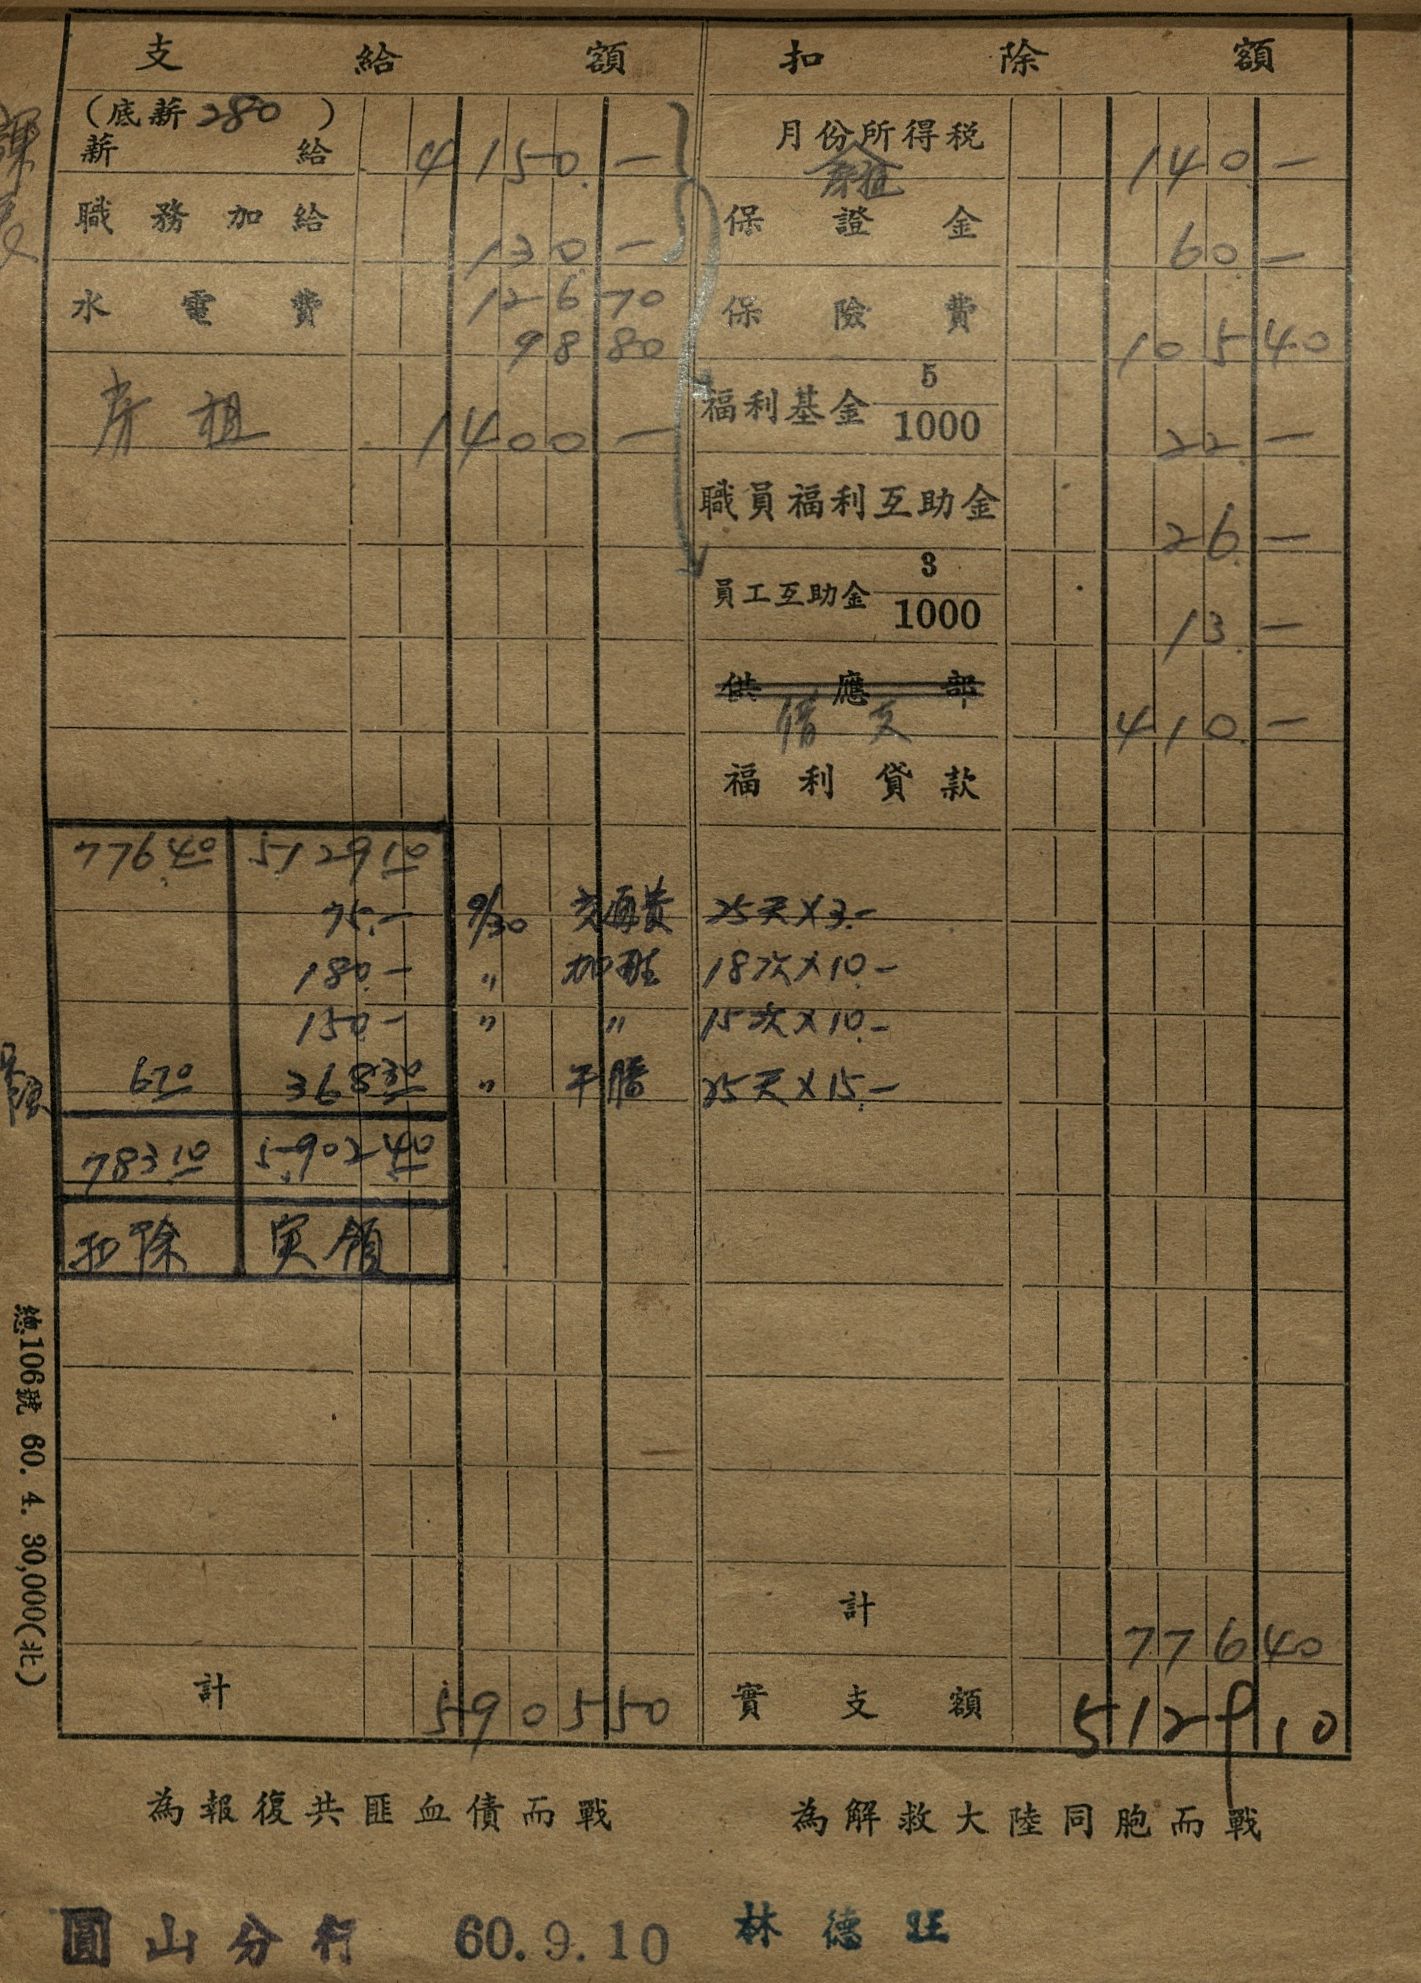 支給額 扣除額
(底薪280)
薪給 4150.—
月份所得稅 140.—
房租
職務加給 130—
保證金 60.—
水電費 126 70
98 80
保險費 105 40
房租 1400—
福利基金 5/1000 22.—
職員福利互助金 26.—
員工互助金 3/1000 13.—
供應部
借支 410.—
福利貸款
776.40 5129 10
75.— 9/30 交通費 25天×3.—
180.— 〃 加班 18次×10.—
150— 〃 〃 15次×10.—
6 70 368 30 〃 午膳 25天×15.—
783 10 5902 40
扣除 実領
計 776 40
計 5905 50
實支額 5129 10
為報復共匪血債而戰 為解救大陸同胞而戰
圓山分行 60.9.10 林德旺
總106號 60. 4. 30,000(北)